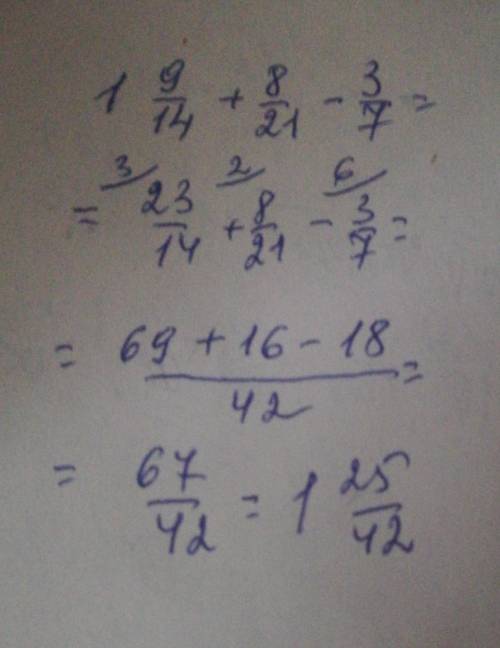 1 9/14 + 8/21 - 3/7 =
3/ 2/ 6/
= 23/14 + 8/21 - 3/7 =
= 69 + 16 - 18 / 42 =
= 67/42 = 1 25/42